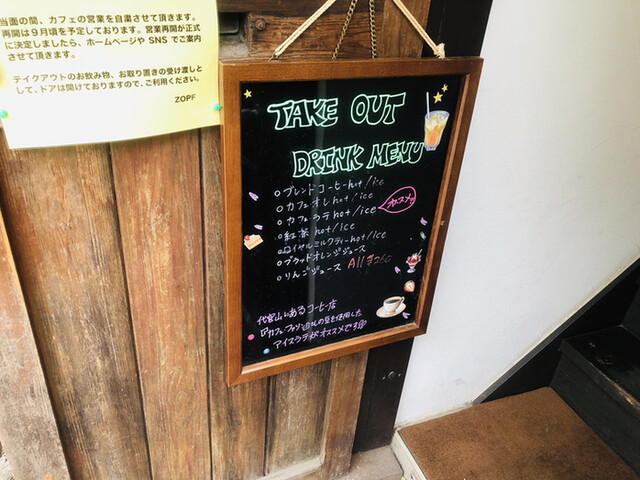 当面の間、カフェの営業を自粛させて頂きます。
再開は9月頃を予定しております。営業再開が正式
に決定しましたら、ホームページや SNS でご案内
させて頂きます。
テイクアウトのお飲み物、お取り置きの受け渡しと
して、ドアは開けておりますので、ご利用ください。
ZOPF
TAKE OUT
DRINK MENU
○ブレンドコーヒーhot/ice
○カフェオレhot/ice
○カフェラテhot/ice オススメ
○紅茶 hot/ice
○ロイヤルミルクティーhot/ice
○ブラッドオレンジジュース
○りんごジュース All ¥260
代官山にあるコーヒー店
の豆を使用した
アイスラテがオススメです